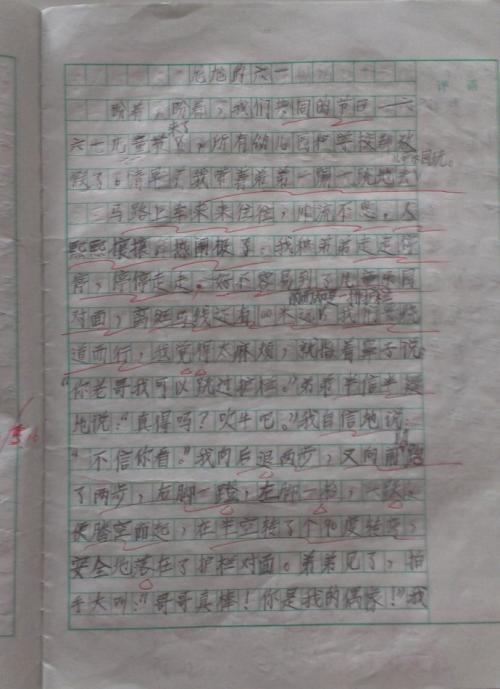 六一
盼着,盼着,我们共同的节日——六
六一儿童节来了,所有的儿园和学校都放
假了。清早,我带着弟弟一蹦一跳地去
儿 乐园玩。
马路上车来来往往,川流不息。人
熙熙攘攘,热闹极了。我和弟弟走走停
停,停停走走。好不容易到了儿童乐园
对面,离斑马线还有100米远 我们要绕
道而行,我觉得太麻烦,就指着鼻子说:
“你老哥我可以跳过护栏。”弟弟半信半疑
地说:“真得吗?吹牛吧。”我自信地说:
“不信你看。”我向后退两步,又向前跑
了两步,左脚一蹬,右脚一抬,一跃
便腾空而起,在半空转了个90度转弯,
安全地落在了护栏对面。弟弟见了,拍
手大叫:“哥哥真棒!你是我的偶像!”我